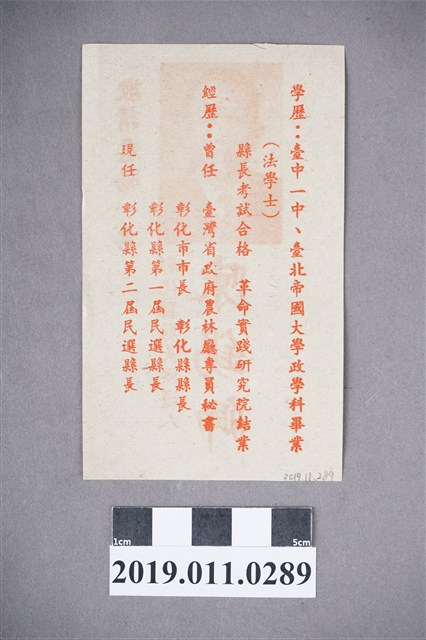 學歷：臺中一中、臺北帝國大學政學科畢業
（法學士）
縣長考試合格　革命實踐研究院結業
經歷：曾任　臺灣省政府農林廳專員秘書
彰化市市長　彰化縣縣長
彰化縣第一屆民選縣長
現任　彰化縣第二屆民選縣長
2019.11.289
1cm 5cm
2019.011.0289